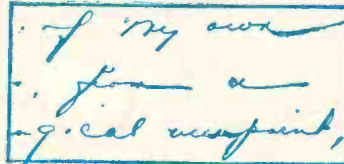 of my own
from a
gical viewpoint,